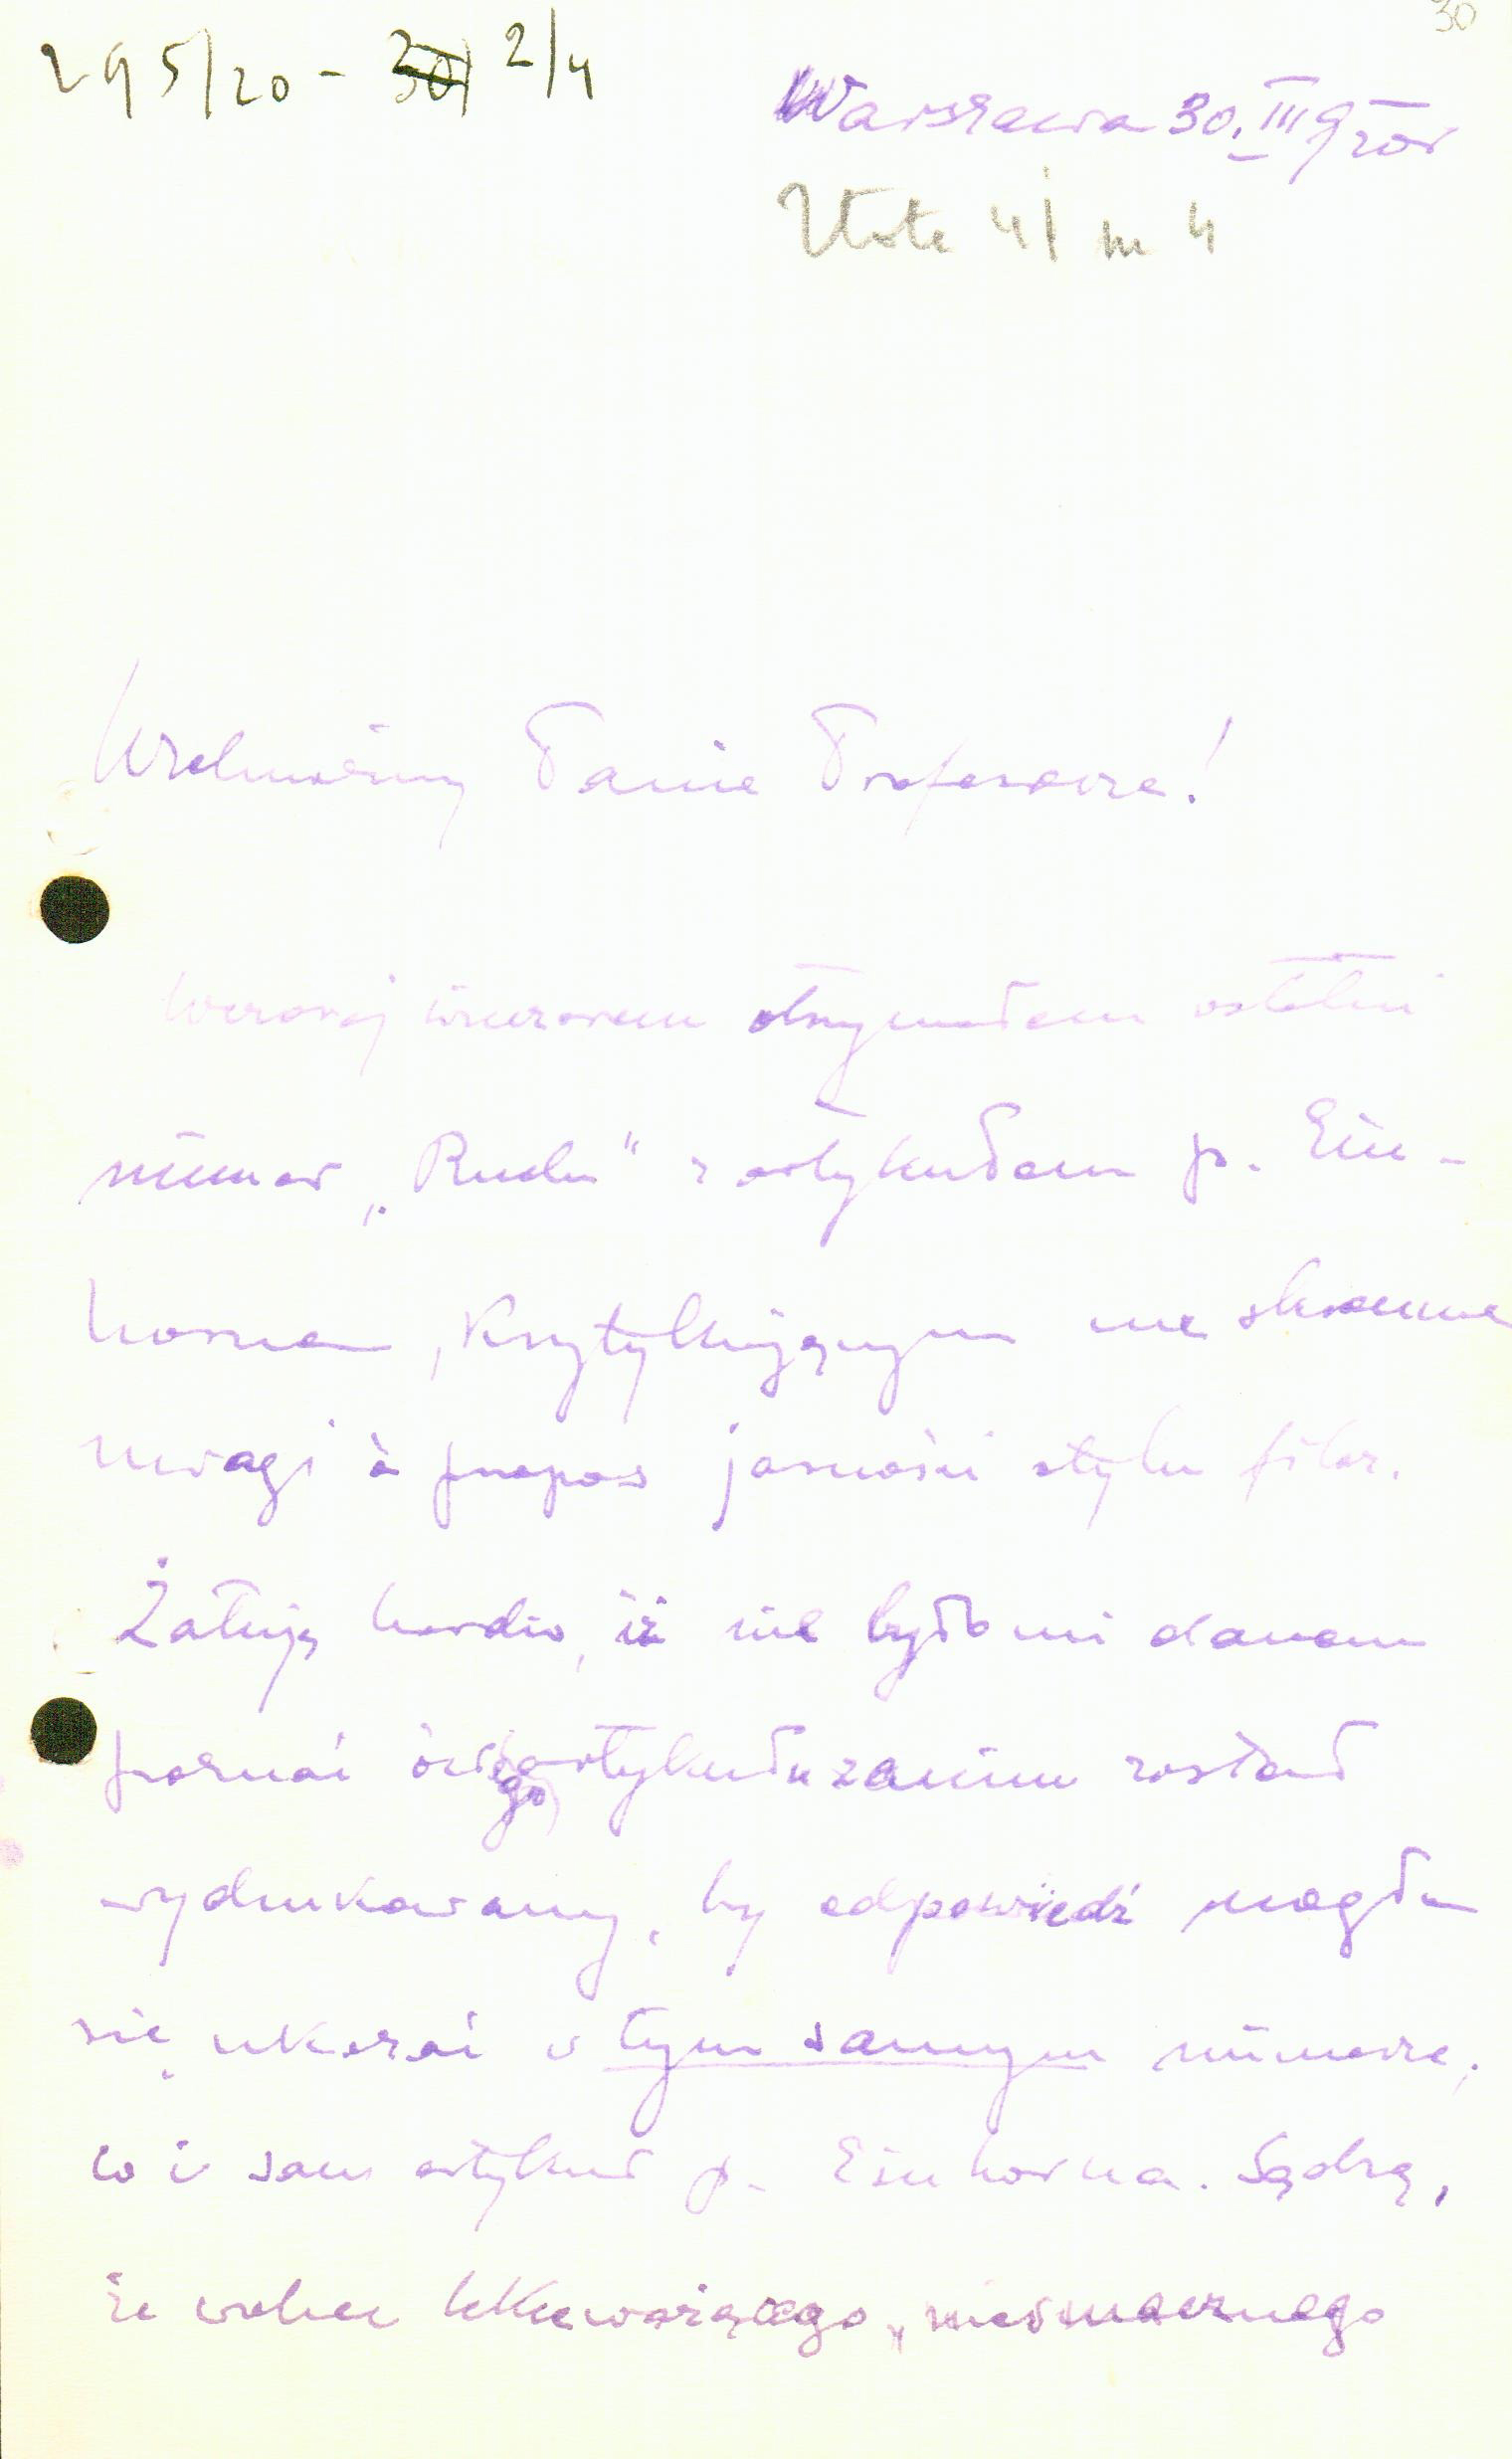 30
295/20 - 30/ 2/4
Warszawa 30. III 920r
Złota 41 m 4
Wielmożny Panie Profesorze!
Wczoraj wieczorem otrzymałem ostatni
numer „Ruchu" z artykułem p. Ein-
horna, krytykującym me skromne
uwagi à propos jasności stylu filoz.
Żałuję bardzo, iż nie było mi danem
poznać owego artykułu zanim został
wydrukowany, by odpowiedź mogła
się ukazać w tym samym numerze,
co i sam artykuł p. Einhorna. Sądzę,
że wobec lekceważącego, niesmacznego